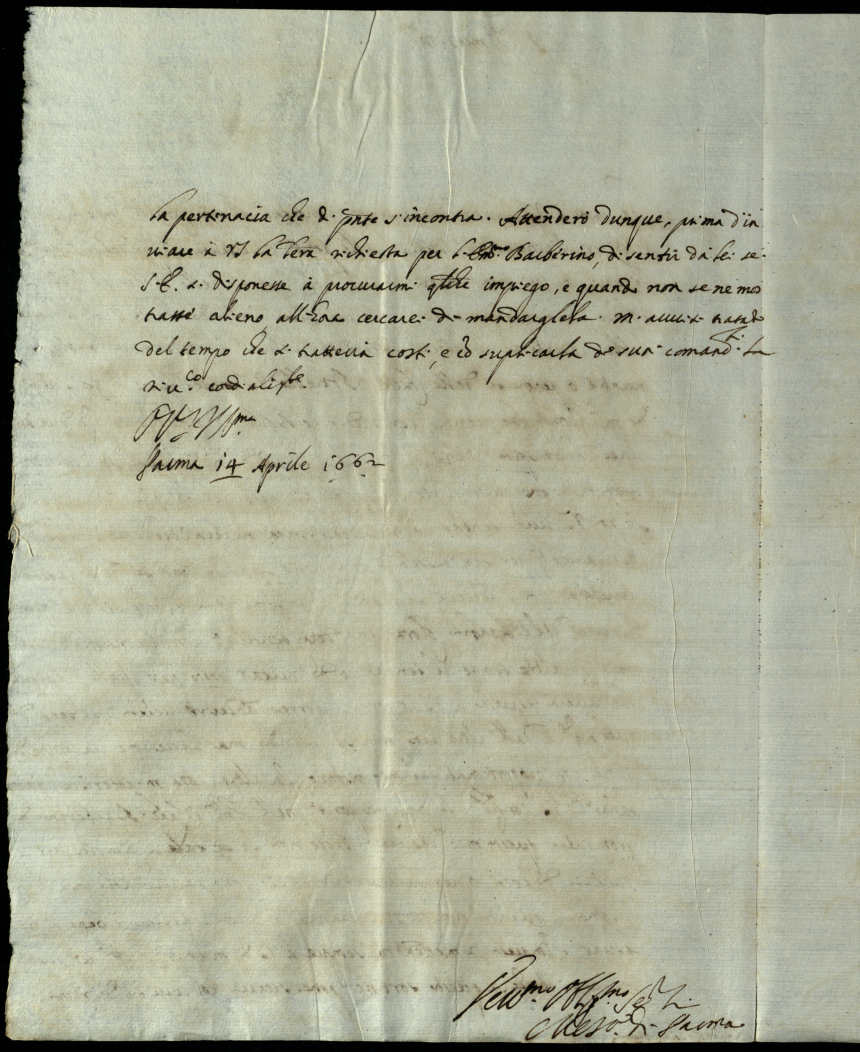 la pertinacia che di pnte s'incontra. Attenderò dunque, prima d'in
viare à VS la lera richiesta per l'Emo Barberino, di sentir da lei se
S.E. si disponesse à procurarmi qlche impiego, e quando non se ne mos
trasse alieno all'hora cercarei di mandargliela. M'avvisi
del tempo che si tratterrà costì, e co supplicarla de suoi comandi la
riv.co cordialmte.
Parma 14 Aprile 1662
Vesc.o di Parma